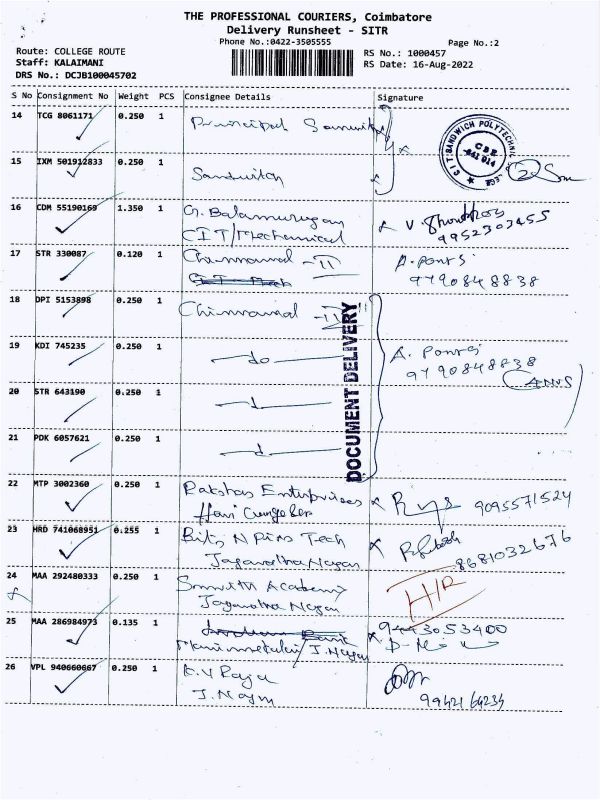 THE PROFESSIONAL COURIERS, Coimbatore
Delivery Runsheet - SITR
Phone No.:0422-3505555
Page No.:2
Route: COLLEGE ROUTE
RS No.: 1000457
Staff: KALAIMANI
RS Date: 16-Aug-2022
DRS No.: DCJB100045702
S No Consignment No Weight PCS Consignee Details Signature
14 TCG 8061171 0.250 1 Principal
SANDWICH POLYTECHNIC
CBE
15 IXM 501912833 0.250 1 Sandwitch
16 CDM 55190169 1.350 1 G. Balamurugan
CIT/Mechanical
9952303455
17 STR 330087 0.120 1 Chinnamal - II
A. Ponsi
9790848838
18 DPI 5153898 0.250 1 Chinnamal - II
DOCUMENT DELIVERY
19 KDI 745235 0.250 1 do
A. Ponsi
9790848838
20 STR 643190 0.250 1
21 PDK 6057621 0.250 1
22 MTP 3002360 0.250 1 Rakshas Enterprises
9095571524
23 HRD 741068951 0.255 1 Bits N Pins Tech
Jaganatha Nagar
8681032676
24 MAA 292480333 0.250 1 Smrith Academy
Jaganatha Nagar
H/R
25 MAA 286984973 0.135 1
J. Nagar
9443053400
26 VPL 940660667 0.250 1 K.V Raja
J. Nagar